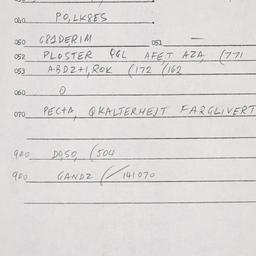 040 PO,LK8ES
050 C81DERIM 051 —
052 PLOSTER QGL AFET AZA, (771
053 ABDZ+1,ROK (172 (162
060 0
070 PECTA, QKALTERHEJT FARGLIVERT
900 DQSO, (504
900 GANDZ (/ 141070